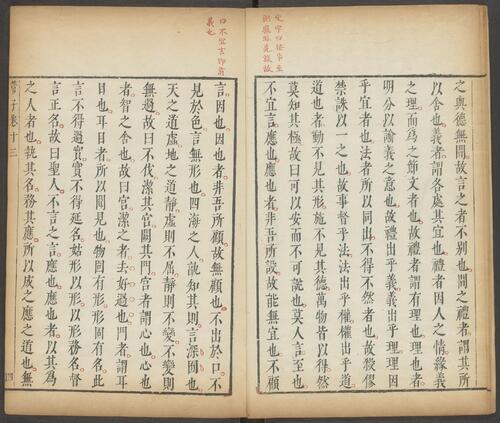 之與德無間故言之者不別也間之禮者謂其所
以舍也義者謂各處其宜也禮者因人之情緣義
之理而為之節文者也故禮者謂有理也理也者
明分以諭義之意也故禮出乎義義出乎理理因
乎宜者也法者所以同出不得不然者也故殺僇
禁誅以一之也故事督乎法法出乎權權出乎道
道也者動不見其形施不見其德萬物皆以得然
莫知其極故曰可以安而不可說也莫人言至也
不宜言應也應也者非吾所設故能無宜也不顧
義也
言因也因也者非吾所顧故無顧也不出於口不
見於色言無形也四海之人孰知其則言深囿也
天之道虛地之道靜虛則不屈靜則不變不變則
無過故曰不伐潔其宮闕其門宮者謂心也心也
者智之舍也故曰宮潔之者去好過也門者謂耳
目也耳目者所以聞見也物固有形形固有名此
言不得過實實不得延名姑形以形以形務名督
言正名故曰聖人不言之言應也應也者以其為
之人者也執其名務其應所以成之應之道也無
管子卷十三